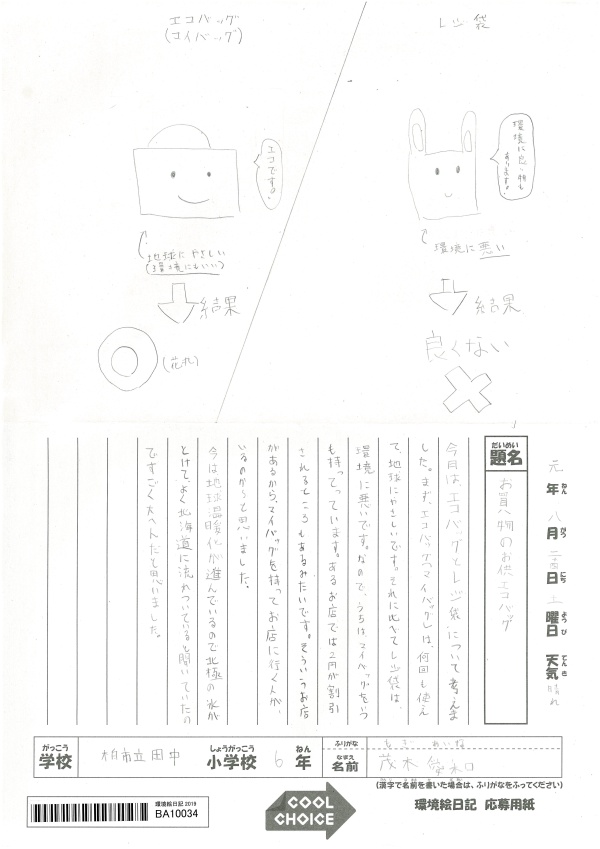 エコバッグ
(コイバッグ)
レジ袋
エコです。
環境に良い物も
あります。
地球にやさしい
(環境にもいい)
環境に悪い
結果
結果
(花丸)
良くない
元年 八月 日 土曜日 天気 晴れ
ねん がつ にち ようび てんき
だいめい
題名
お買い物のお供エコバッグ
今月は、エコバッグとレジ袋について考えま
した。まず、エコバッグ(マイバッグ)は、何回も使え
て、地球にやさしいです。それに比べてレジ袋は、
環境に悪いです。なので、うちは、マイバッグをいつ
も持っています。あるお店では2円が割引
されるところもあるみたいです。そういうお店
があるから、マイバッグを持ってお店に行く人が、
いるのかと思いました。
今は地球温暖化が進んでいるので北極の氷が
とけて、よく北海道に流れついていると聞いていたの
ですごく大へんだと思いました。
がっこう
学校
柏市立田中
しょうがっこう
小学校
6
ねん
年
ふりがな
なまえ
名前
茂木
(漢字で名前を書いた場合は、ふりがなをふってください)
環境絵日記2019
BA10034
COOL
CHOICE
環境絵日記 応募用紙